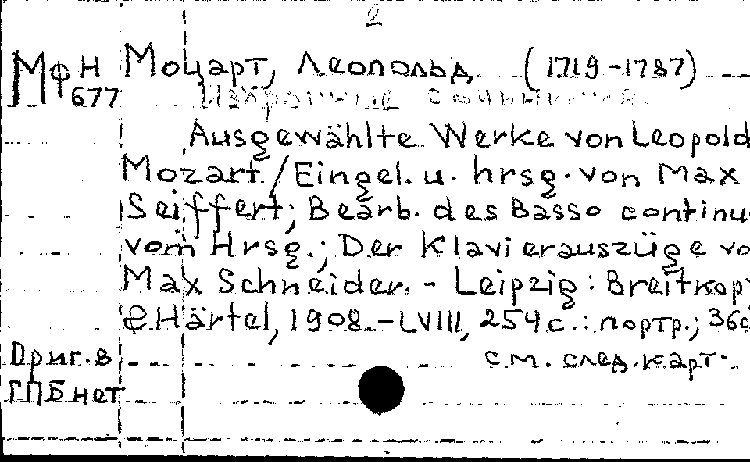 2
МфН Моцарт, Леопольд (1719-1787)
677 Избранные сочинения.
Ausgewählte Werke von Leopold
Mozart / Eingel. u. hrsg. von Max
Seiffert; Bearb. des Basso continu
vom Hrsg.; Der Klavierauszüge vo
Max Schneider. - Leipzig: Breitkop
& Härtel, 1908. - LVIII, 254 с.: портр.; 36
Ориг. в см. след. карт.
ГПБ нет